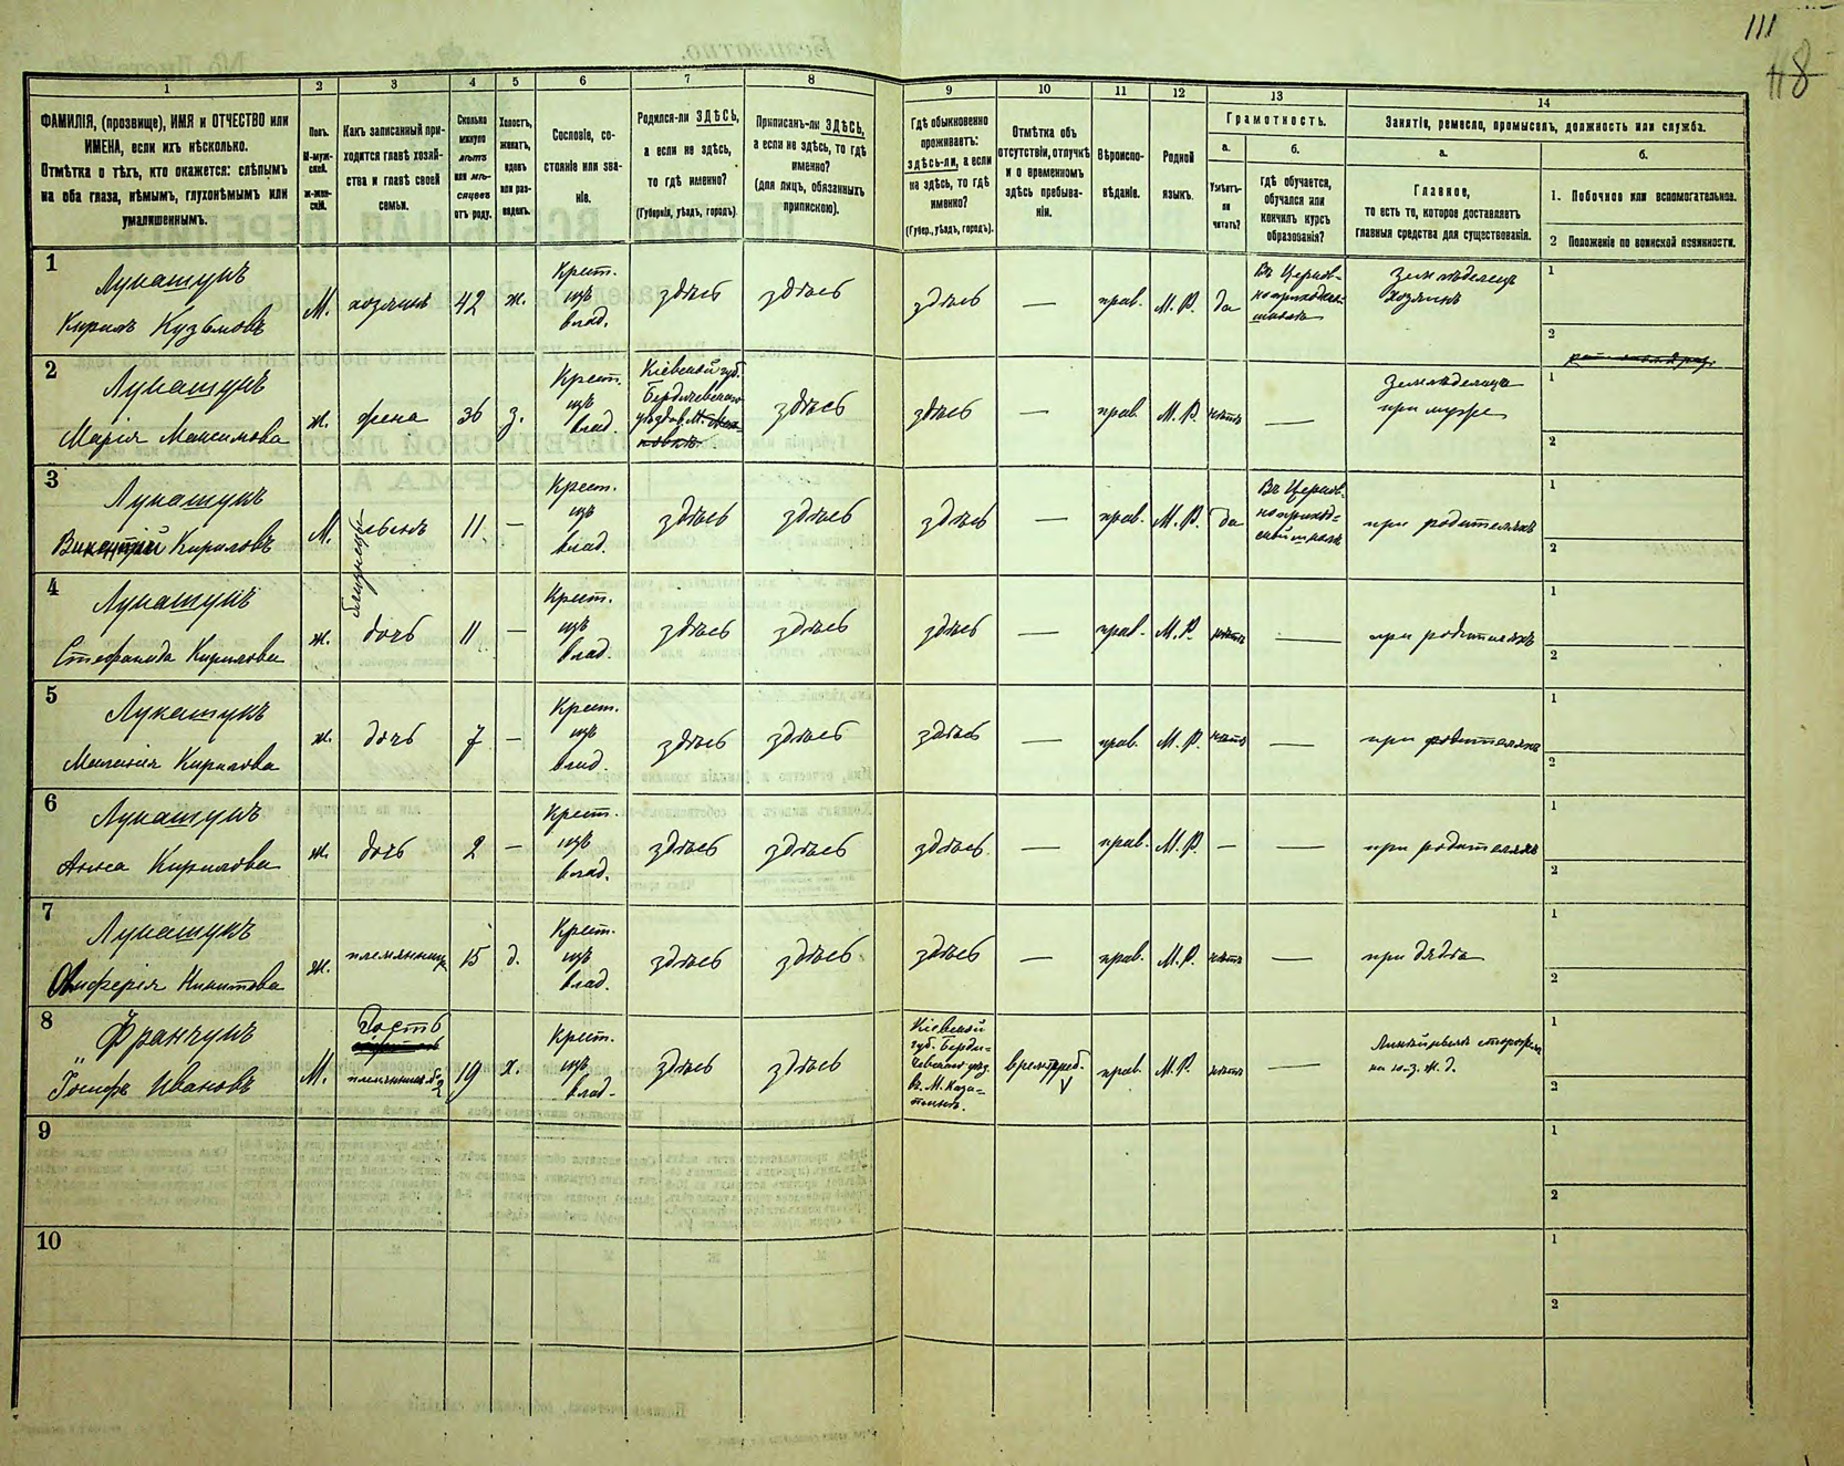 111
118
1
2
3
4
5
6
7
8
9
10
11
12
13
14
ФАМИЛІЯ, (прозвище), ИМЯ и ОТЧЕСТВО или
ИМЕНА, если ихъ нѣсколько.
Отмѣтка о тѣхъ, кто окажется: слѣпымъ
на оба глаза, нѣмымъ, глухонѣмымъ или
умалишеннымъ.
Полъ.
М-муж-
ской.
Ж-жен-
скій.
Какъ записанный при-
ходится главѣ хозяй-
ства и главѣ своей
семьи.
Сколько
минуло
лѣтъ
или мѣ-
сяцевъ
отъ роду.
Холостъ,
женатъ,
вдовъ
или раз-
веденъ.
Сословіе, со-
стояніе или зва-
ніе.
Родился-ли ЗДѢСЬ,
а если не здѣсь,
то гдѣ именно?
(Губернія, уѣздъ, городъ)
Приписанъ-ли ЗДѢСЬ,
а если не здѣсь, то гдѣ
именно?
(для лицъ, обязанныхъ
припискою).
Гдѣ обыкновенно
проживаетъ:
здѣсь-ли, а если
не здѣсь, то гдѣ
именно?
(Губер., уѣздъ, городъ).
Отмѣтка объ
отсутствіи, отлучкѣ
и о временномъ
здѣсь пребыва-
ніи.
Вѣроиспо-
вѣданіе.
Родной
языкъ.
Грамотность.
а.
Умѣетъ-
ли
читать?
б.
гдѣ обучается,
обучался или
кончилъ курсъ
образованія?
Занятіе, ремесло, промыселъ, должность или служба.
а.
Главное,
то есть то, которое доставляетъ
главныя средства для существованія.
б.
1. Побочное или вспомогательное.
2 Положеніе по воинской повинности.
1
Лукашукъ
Кирилъ Кузьмовъ
М.
хозяинъ
42
ж.
Крест.
изъ
влад.
здѣсь
здѣсь
здѣсь
—
прав.
М. Р.
да
Въ Церков-
но приходской
школѣ
Земледѣлецъ
Хозяинъ
1
2
2
Лукашукъ
Марія Максимова
ж.
жена
36
з.
Крест.
изъ
влад.
Кіевской губ.
Бердичевскаго
здѣсь
здѣсь
—
прав.
М. Р.
нѣтъ
—
Земледѣлица
при мужѣ
1
2
3
Лукашукъ
Викентрій Кириловъ
М.
сынъ
близнецы
11.
—
Крест.
изъ
влад.
здѣсь
здѣсь
здѣсь
—
прав.
М. Р.
да
Въ Церков-
но приход-
ской школѣ
при родителяхъ
1
2
4
Лукашукъ
Стефанида Кирилова
ж.
дочь
11
—
Крест.
изъ
влад.
здѣсь
здѣсь
здѣсь
—
прав.
М. Р.
нѣтъ
—
при родителяхъ
1
2
5
Лукашукъ
Маланія Кирилова
ж.
дочь
7
—
Крест.
изъ
влад.
здѣсь
здѣсь
здѣсь
—
прав.
М. Р.
нѣтъ
—
при родителяхъ
1
2
6
Лукашукъ
Анна Кирилова
ж.
дочь
2
—
Крест.
изъ
влад.
здѣсь
здѣсь
здѣсь
—
прав.
М. Р.
—
—
при родителяхъ
1
2
7
Лукашукъ
Олиферія Никитова
ж.
племянница
15
д.
Крест.
изъ
влад.
здѣсь
здѣсь
здѣсь
—
прав.
М. Р.
нѣтъ
—
при дядѣ
1
2
8
Франчукъ
Іосифъ Ивановъ
М.
Гость
19
х.
Крест.
изъ
влад.
здѣсь
здѣсь
Кіевской
губ. Берди-
чевскаго уѣз.
въ М. Каза-
тинѣ.
времен. преб.
прав.
М. Р.
нѣтъ
—
Линѣйныхъ сторожъ
на ю. з. ж. д.
1
2
9
1
2
10
1
2